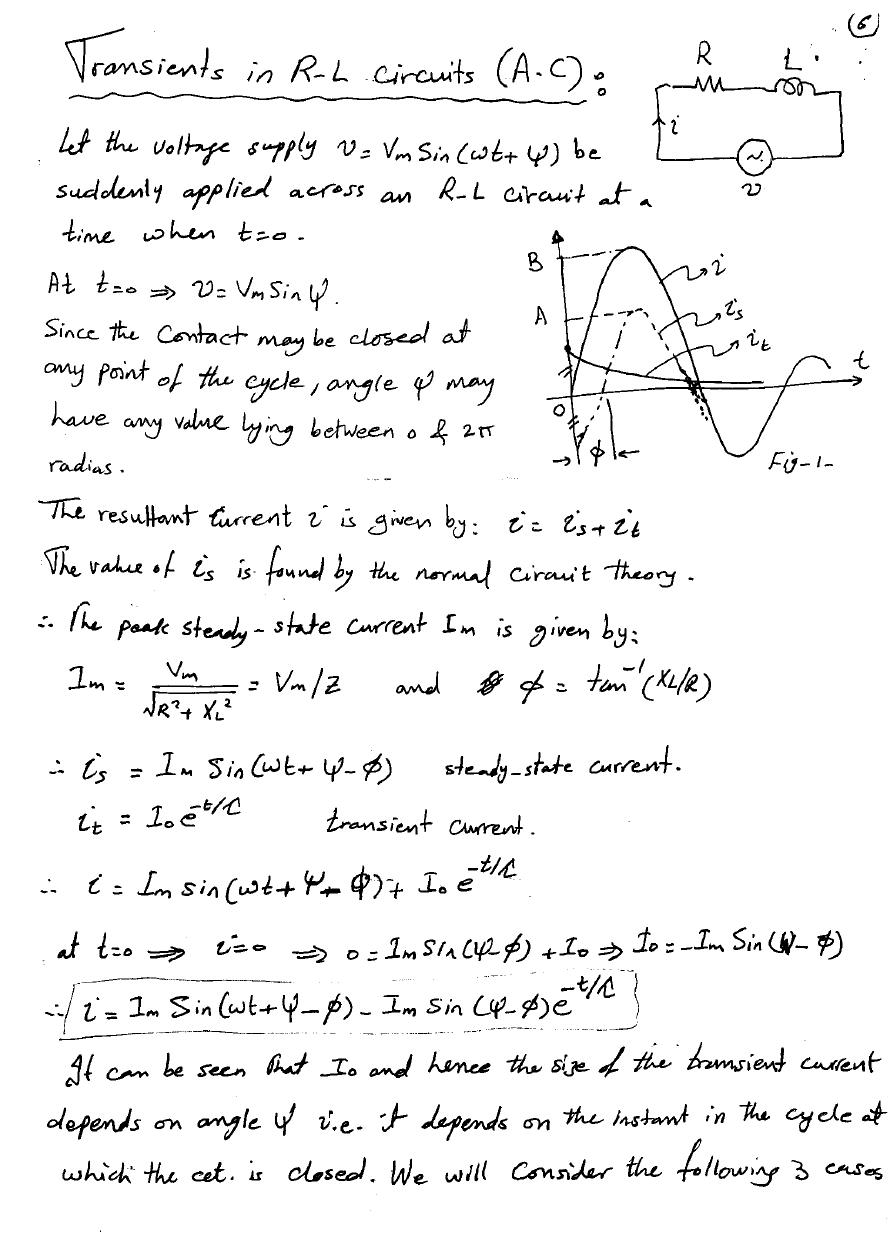 (6)
Transients in R-L circuits (A.C) :
R L
i
v
Let the voltage supply v = Vm Sin(ωt+ψ) be
suddenly applied across an R-L circuit at a
time when t=0.
At t=0 ⇒ v = Vm Sin ψ.
Since the Contact may be closed at
any point of the cycle, angle ψ may
have any value lying between 0 & 2π
radias.
B
i
A
is
it
t
0
ϕ
Fig-1-
The resultant current i is given by: i = is + it
The value of is is found by the normal circuit theory.
∴ The peak steady-state current Im is given by:
Im = Vm / √R²+XL² = Vm/Z and ϕ = tan⁻¹(XL/R)
∴ is = Im Sin(ωt+ψ-ϕ) steady-state current.
it = I₀e^-t/τ transient current.
∴ i = Im sin(ωt+ψ-ϕ)+ I₀ e^-t/τ
at t=0 ⇒ i=0 ⇒ 0 = Im Sin(ψ-ϕ) + I₀ ⇒ I₀ = -Im Sin(ψ-ϕ)
∴ i = Im Sin(ωt+ψ-ϕ) - Im Sin(ψ-ϕ)e^-t/τ
It can be seen that I₀ and hence the size of the transient current
depends on angle ψ i.e. it depends on the instant in the cycle at
which the cct. is closed. We will Consider the following 3 cases